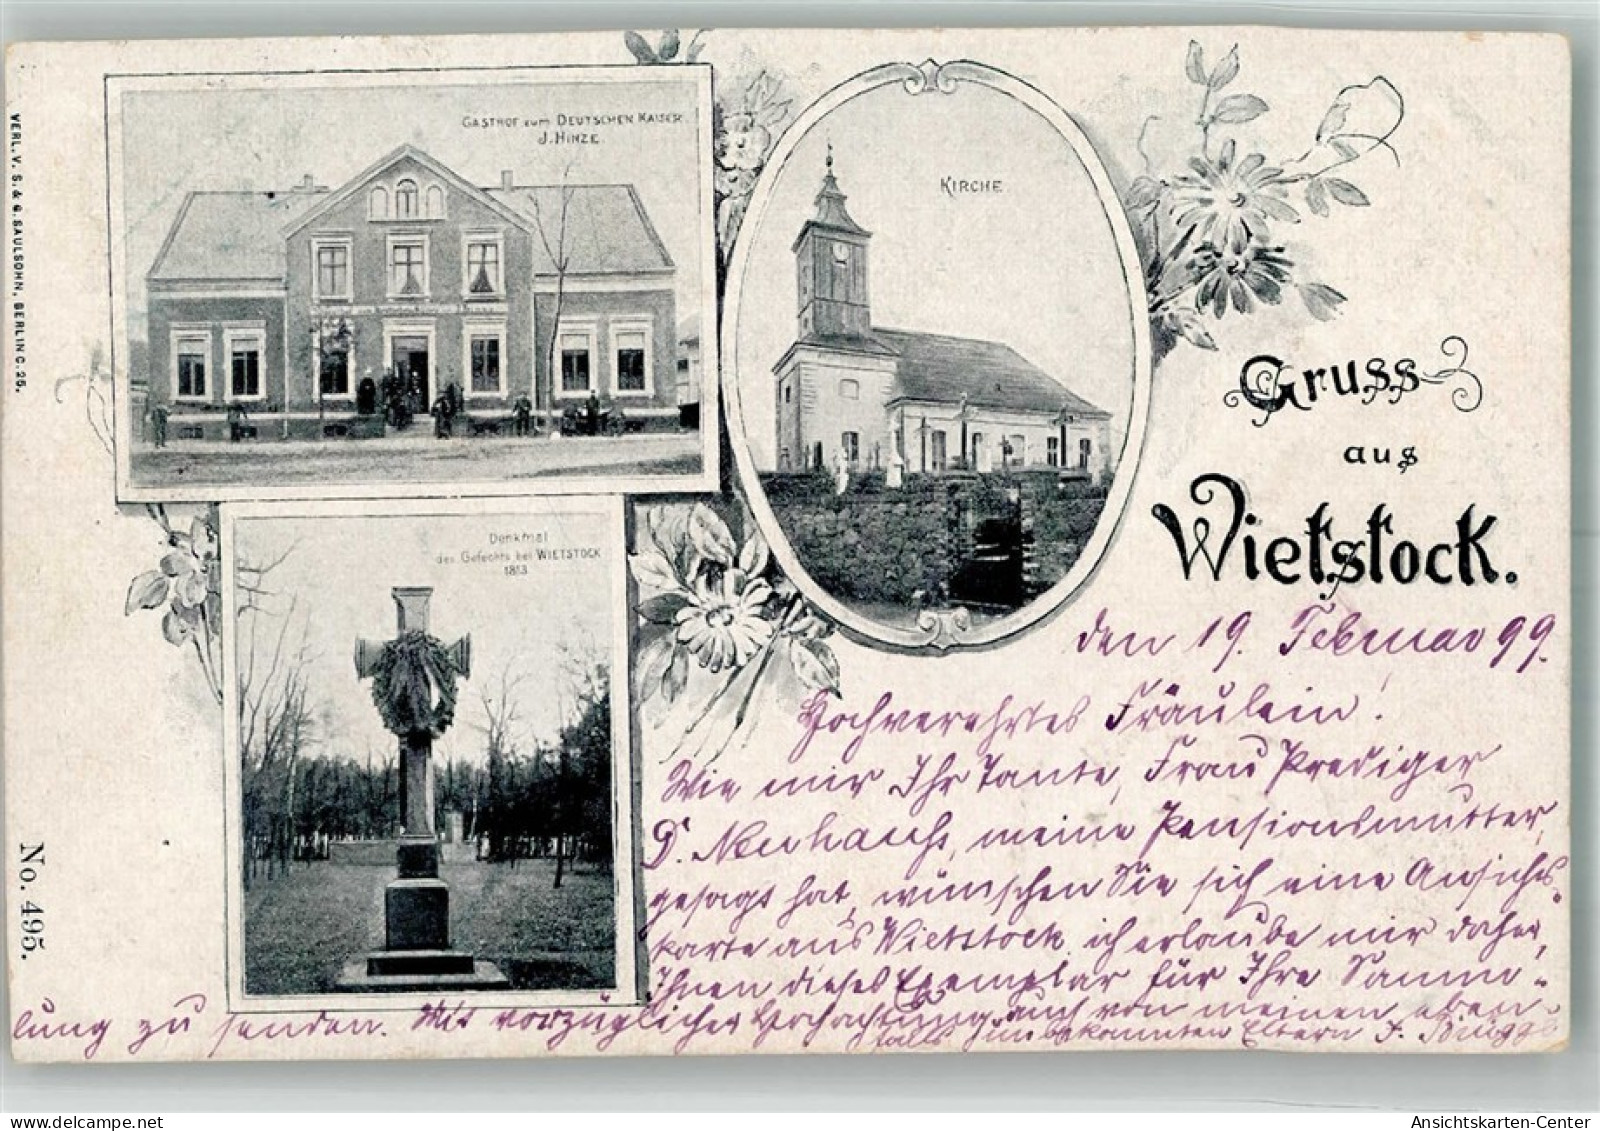 GASTHOF zum DEUTSCHEN KAISER.
J. HINZE.
KIRCHE
Denkmal
des Gefechts bei WIETSTOCK
1813
Gruss
aus
Wietstock.
VERL. V. S. & G. SAULSOHN, BERLIN C. 25.
No. 495.
den 19. Februar 99.
Hochverehrtes Fräulein!
Wie mir Ihr Tante, Frau Prediger
D. Neuhauss, meine Pensionsmutter,
gesagt hat, wünschen Sie sich eine Ansichts-
karte aus Wietstock, ich erlaube mir daher,
Ihnen dieses Exemplar für Ihre Samm-
lung zu senden. Mit vorzüglicher Hochachtung auch von meinen eben-
falls unbekannten Eltern F.
Ansichtskarten-Center